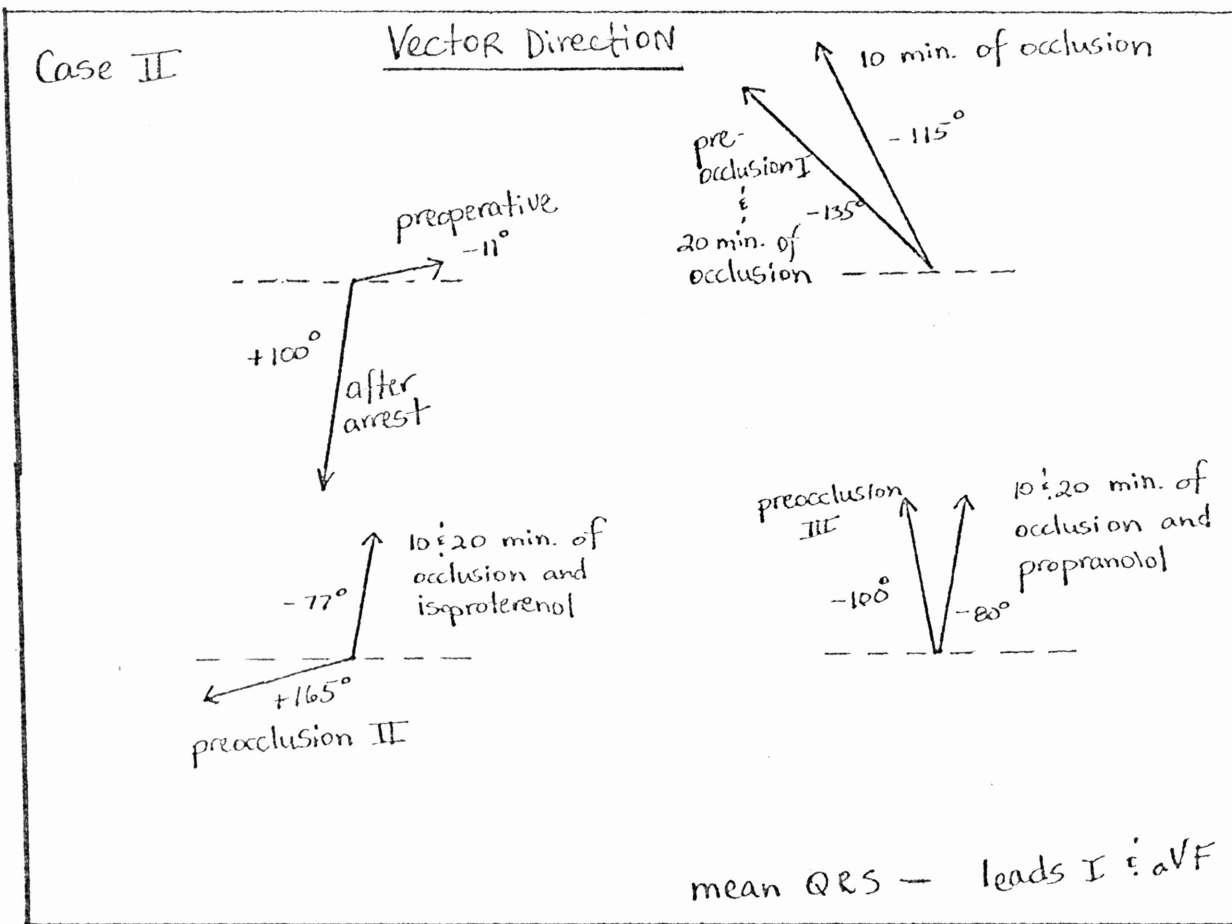 Case II
Vector Direction
10 min. of occlusion
-115°
pre-
occlusion I
&
20 min. of
occlusion
-135°
preoperative
-11°
+100°
after
arrest
10 & 20 min. of
occlusion and
isoproterenol
-77°
+165°
preocclusion II
preocclusion
III
-100°
10 & 20 min. of
occlusion and
propranolol
-80°
mean QRS — leads I & aVF